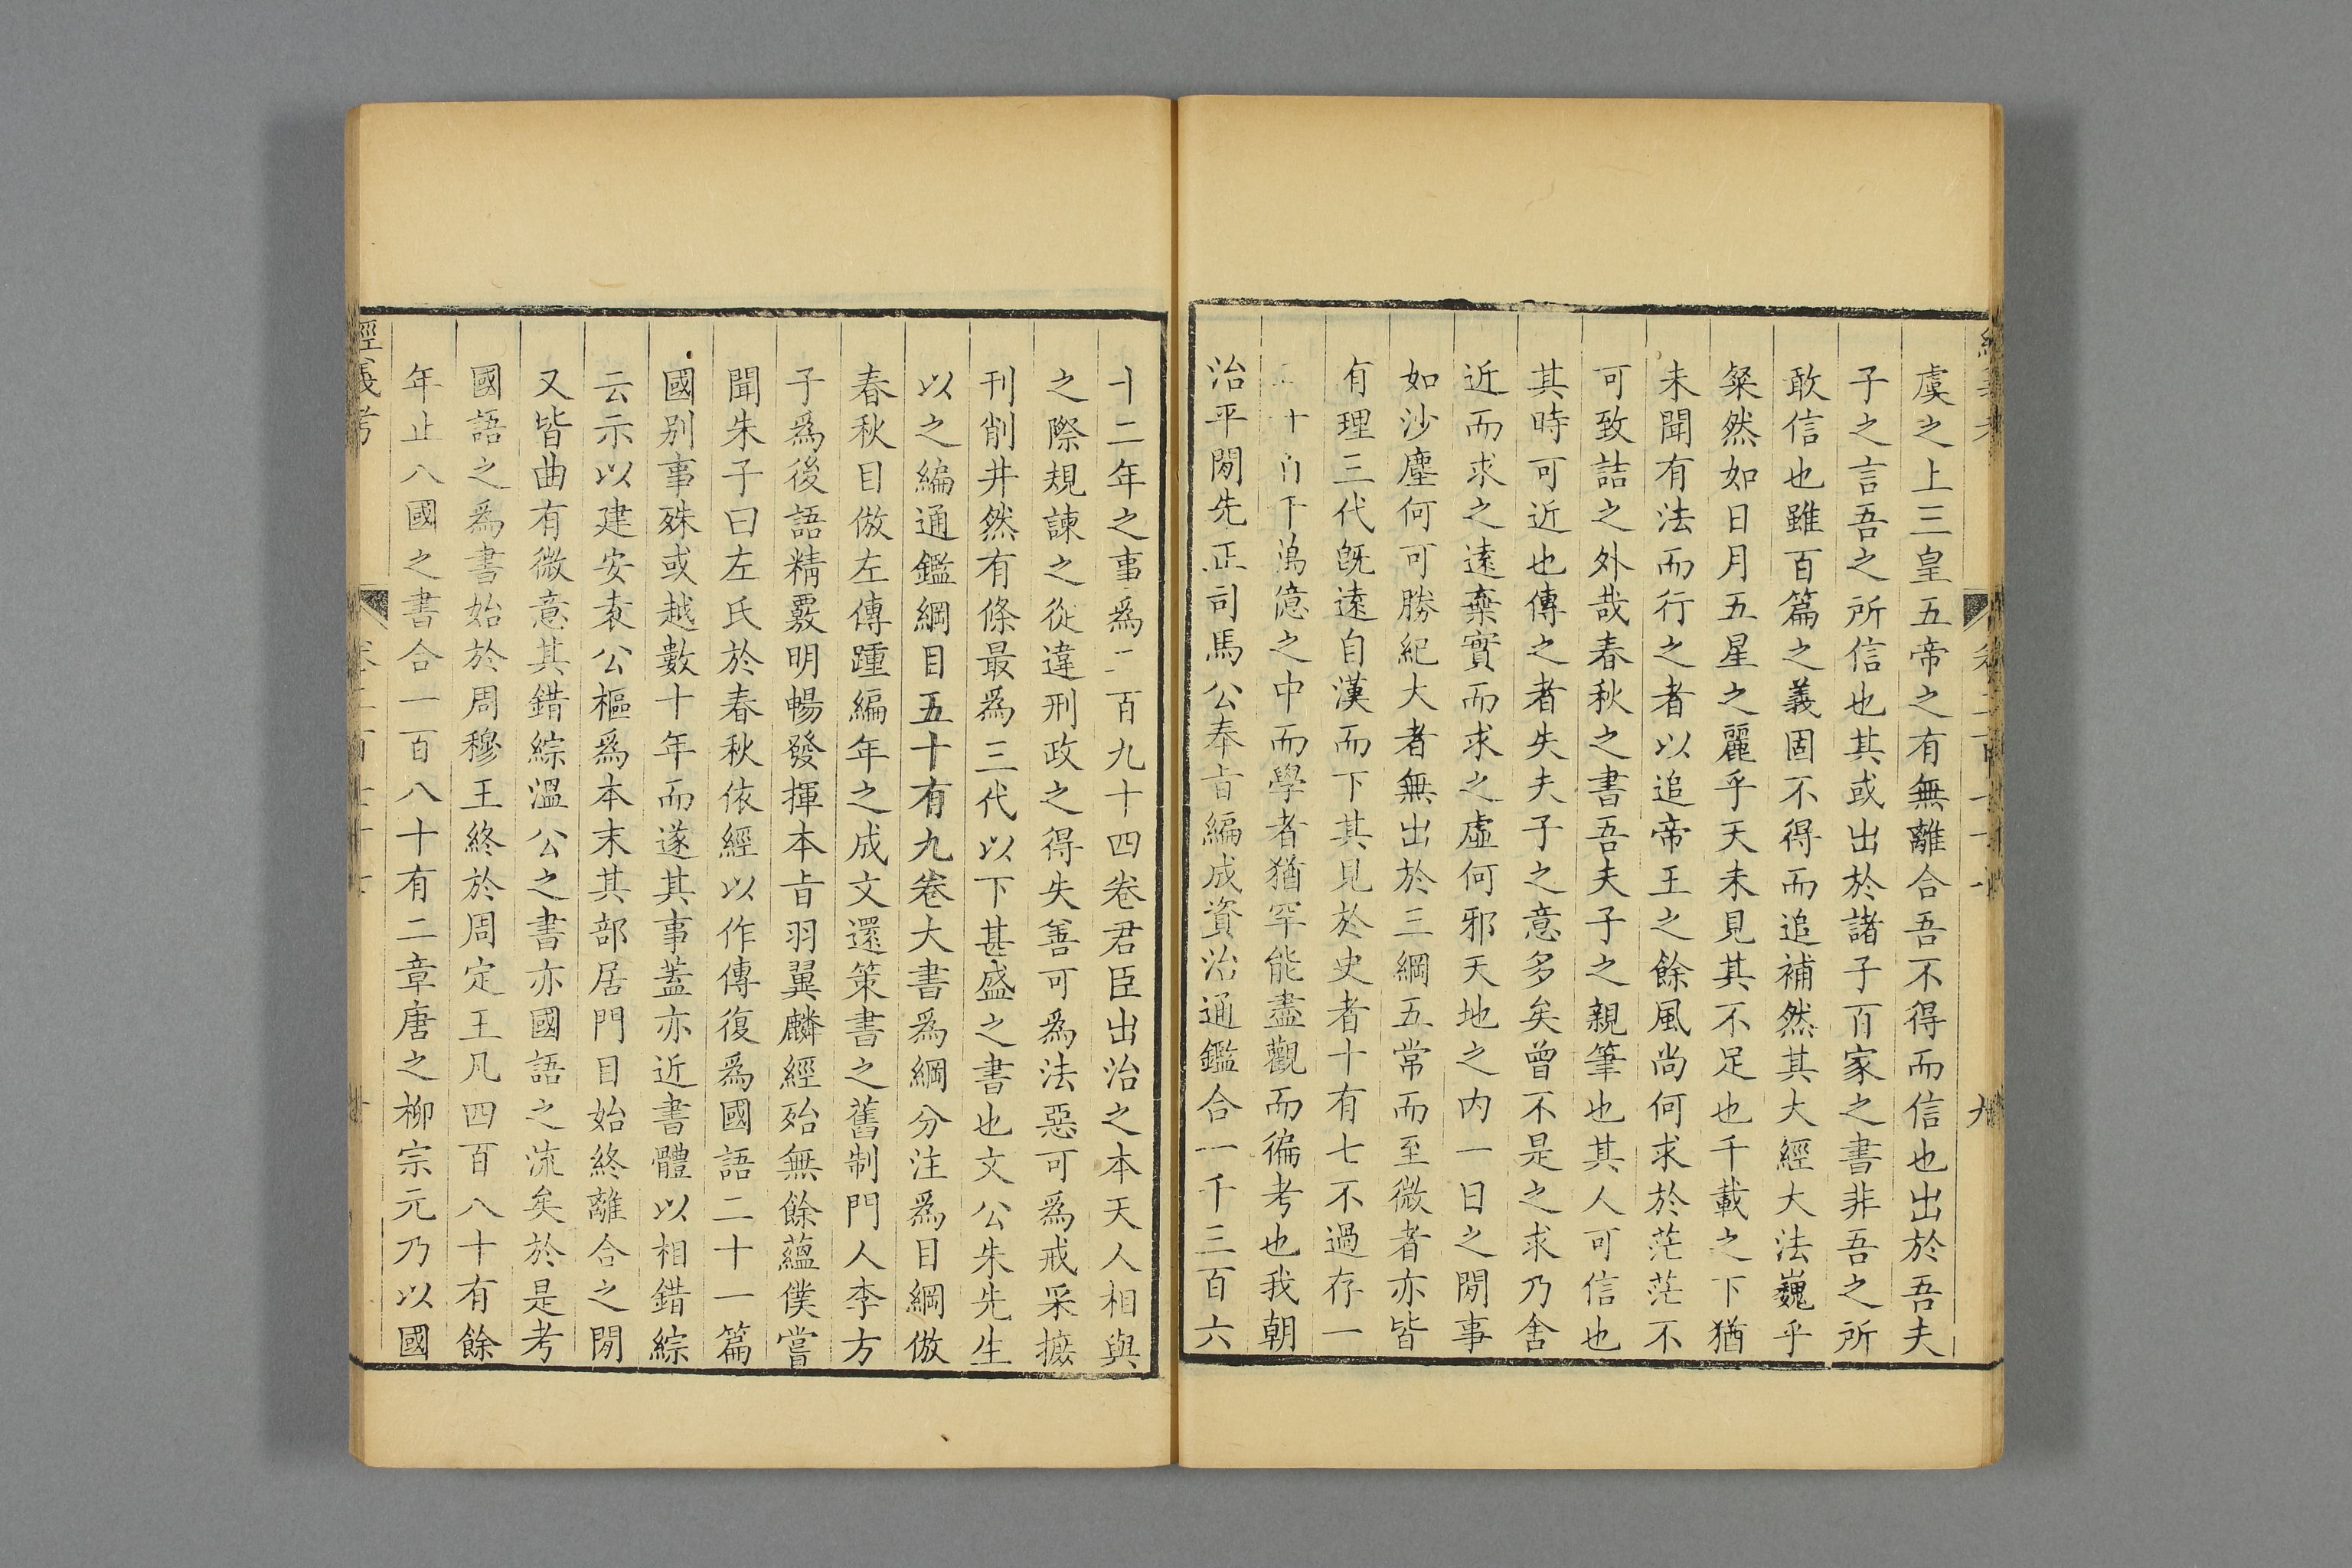 虞之上三皇五帝之有無離合吾不得而信也出於吾夫
子之言吾之所信也其或出於諸子百家之書非吾之所
敢信也雖百篇之義固不得而追補然其大經大法巍乎
粲然如日月五星之麗乎天未見其不足也千載之下猶
未聞有法而行之者以追帝王之餘風尚何求於茫茫不
可致詰之外哉春秋之書吾夫子之親筆也其人可信也
其時可近也傳之者失夫子之意多矣曾不是之求乃舍
近而求之遠棄實而求之虛何邪天地之内一日之閒事
如沙塵何可勝紀大者無出於三綱五常而至微者亦皆
有理三代旣遠自漢而下其見於史者十有七不過存一
十下萬億之中而學者猶罕能盡觀而徧考也我朝
治平閒先正司馬公奉旨編成資治通鑑合一千三百六
十二年之事爲二百九十四卷君臣出治之本天人相與
之際規諫之從違刑政之得失善可爲法惡可爲戒采摭
刊削井然有條最爲三代以下甚盛之書也文公朱先生
以之編通鑑綱目五十有九卷大書爲綱分注爲目綱倣
春秋目倣左傳踵編年之成文還策書之舊制門人李方
子爲後語精覈明暢發揮本旨羽翼麟經殆無餘蘊僕嘗
聞朱子曰左氏於春秋依經以作傳復爲國語二十一篇
國别事殊或越數十年而遂其事蓋亦近書體以相錯綜
云示以建安袁公樞爲本末其部居門目始終離合之閒
又皆曲有微意其錯綜溫公之書亦國語之流矣於是考
國語之爲書始於周穆王終於周定王凡四百八十有餘
年止八國之書合一百八十有二章唐之柳宗元乃以國
經義考